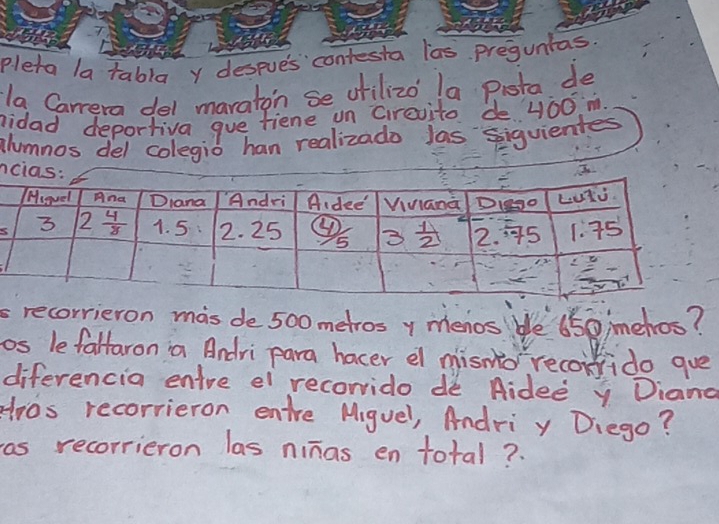 pleta la tabla y después contesta las preguntas.
la Carrera del maraton se utilizó la pista de
nidad deportiva que tiene un circuito de 400 m.
alumnos del colegio han realizado las siguientes
ncias:
Miguel Ana Diana Andri Aideé Viviana Diego Lulú
s 3 2 4/8 1.5 2.25 4/5 3 1/2 2.75 1.75
s recorrieron más de 500 metros y menos de 650 metros?
os le faltaron a Andri para hacer el mismo recorrido que
diferencia entre el recorrido de Aideé y Diana
etros recorrieron entre Miguel, Andri y Diego?
ros recorrieron las niñas en total?